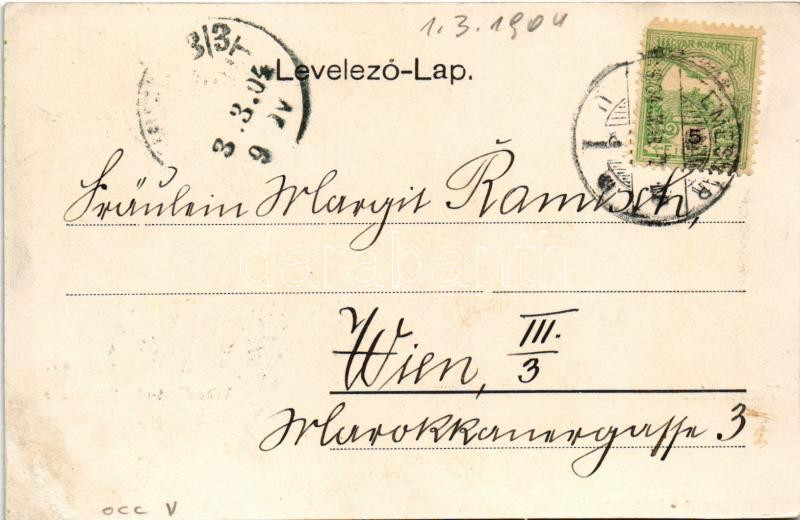 1.3.1904
Levelező-Lap.
MAGYAR KIR. POSTA
3/3
3.3.04
9
5
Fräulein Margit Ramisch,
darabanth
Wien, III./3
Marokkanergasse 3
occ V